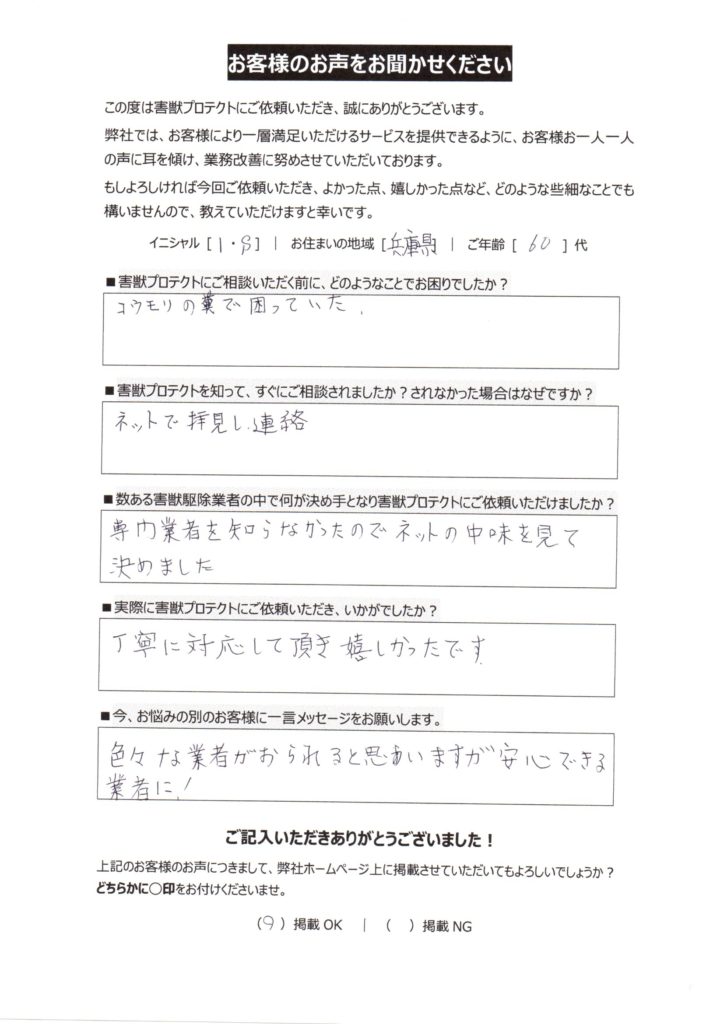 お客様のお声をお聞かせください
この度は害獣プロテクトにご依頼いただき、誠にありがとうございます。
弊社では、お客様により一層満足いただけるサービスを提供できるように、お客様お一人一人
の声に耳を傾け、業務改善に努めさせていただいております。
もしよろしければ今回ご依頼いただき、よかった点、嬉しかった点など、どのような些細なことでも
構いませんので、教えていただけますと幸いです。
イニシャル [ I・S ] | お住まいの地域 [兵庫県 | ご年齢 [ 60 ] 代
■害獣プロテクトにご相談いただく前に、どのようなことでお困りでしたか？
コウモリの糞で困っていた.
■害獣プロテクトを知って、すぐにご相談されましたか？されなかった場合はなぜですか？
ネットで拝見し、連絡
■数ある害獣駆除業者の中で何が決め手となり害獣プロテクトにご依頼いただけましたか？
専門業者を知らなかったのでネットの中味を見て
決めました
■実際に害獣プロテクトにご依頼いただき、いかがでしたか？
丁寧に対応して頂き嬉しかったです
■今、お悩みの別のお客様に一言メッセージをお願いします。
色々な業者がおられると思あいますが安心できる
業者に!
ご記入いただきありがとうございました！
上記のお客様のお声につきまして、弊社ホームページ上に掲載させていただいてもよろしいでしょうか？
どちらかに〇印をお付けくださいませ。
（○）掲載 OK | （ ）掲載 NG